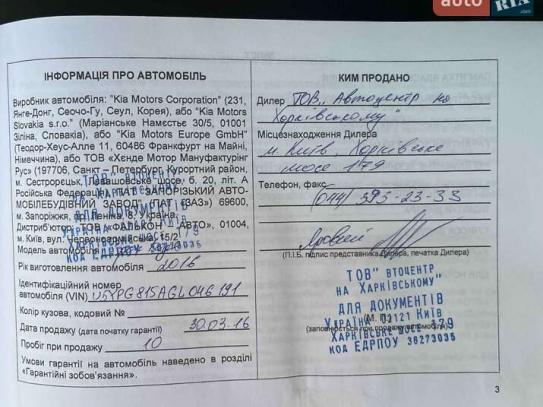 auto RIA
ІНФОРМАЦІЯ ПРО АВТОМОБІЛЬ
Виробник автомобіля: "Kia Motors Corporation" (231,
Янге-Донг, Сеочо-Гу, Сеул, Корея), або "Kia Motors
Slovakia s.r.o." (Маріанське Намєстіє 30/5, 01001
Зіліна, Словакія), або "Kia Motors Europe GmbH"
(Теодор-Хеус-Алле 11, 60486 Франкфурт на Майні,
Німеччина), або ТОВ «Хєнде Мотор Мануфактурінг
Рус» (197706, Санкт – Петербург, Курортний район,
м. Сестрорецьк, Левашовське шосе, б. 20, літ. А
Російська Федерація), ПАТ "ЗАПОРІЗЬКИЙ АВТО-
МОБІЛЕБУДІВНИЙ ЗАВОД" (ПАТ "ЗАЗ») 69600,
м. Запоріжжя, пр. Леніна, 8, Україна.
Дистриб'ютор: ТОВ "ФАЛЬКОН – АВТО", 01004,
м. Київ, вул. Червоноармійська, 15/2
Модель автомобіля
Рік виготовлення автомобіля 2016
Ідентифікаційний номер
автомобіля (VIN) U5YPG815AGL046191
Колір кузова, кодовий №
Дата продажу (дата початку гарантії) 30.03.16
Пробіг при продажу 10
Умови гарантії на автомобіль наведено в розділі
«Гарантійні зобов'язання».
ТОВ
НА ХАРКІВСЬКОМУ
ДЛЯ ДОКУМЕНТІВ
КОД ЄДРПОУ 38273035
КИМ ПРОДАНО
Дилер ТОВ „Автоцентр на
Харківському"
Місцезнаходження Дилера
м. Київ, Харківське
шосе 179
Телефон, факс
(044) 595-23-33
(П.І.Б. підпис представника Дилера, печатка Дилера)
ТОВ" ВТОЦЕНТР
НА ХАРКІВСЬКОМУ"
ДЛЯ ДОКУМЕНТІВ
УКРАЇНА 02121 КИЇВ
(М. П.)
ХАРКІВСЬКЕ ШОСЕ 179
КОД ЄДРПОУ 38273035
3